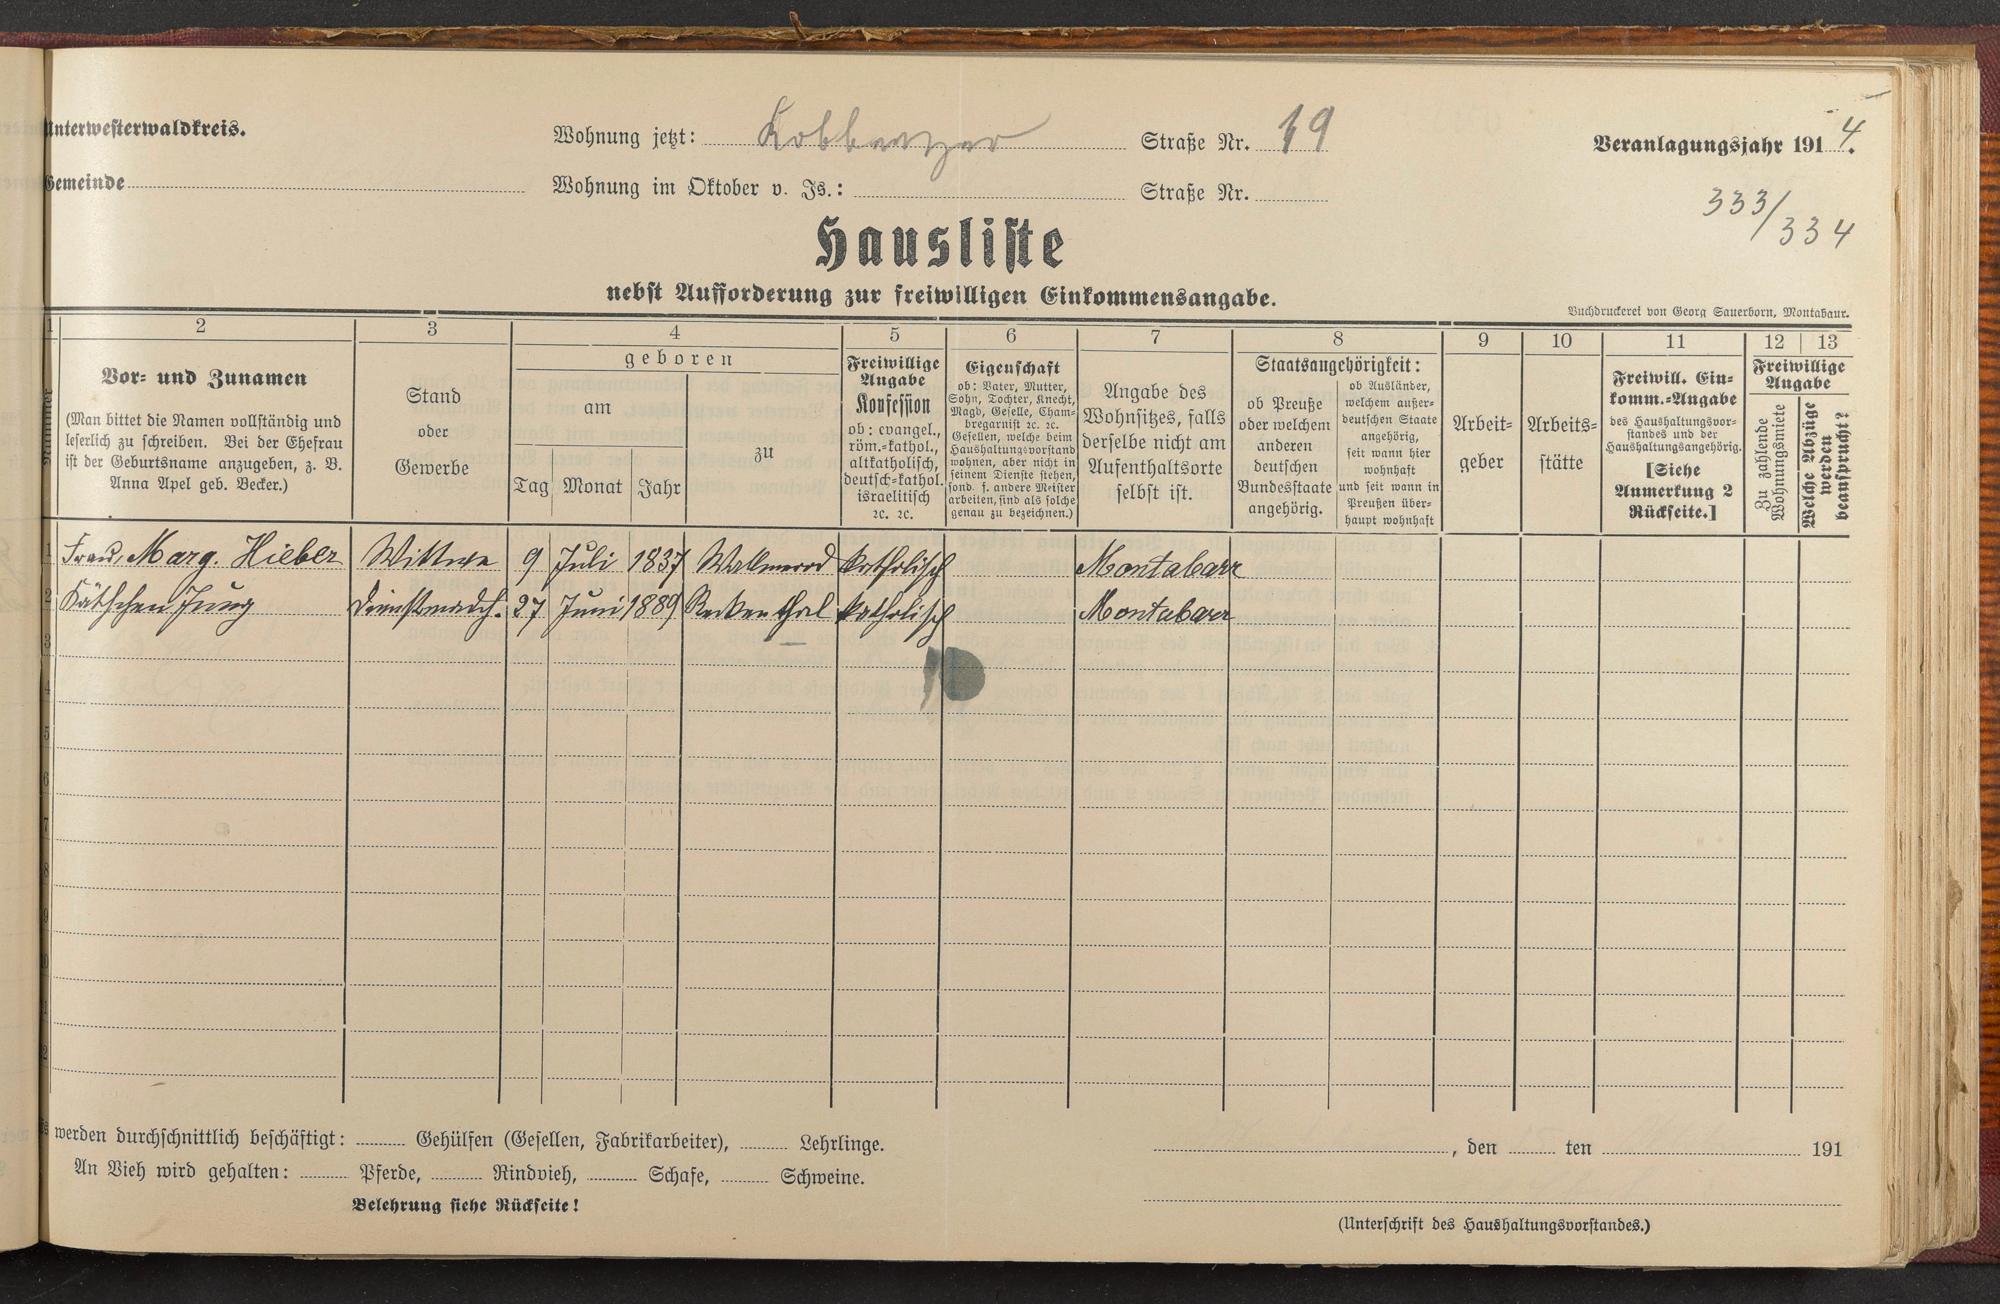 Unterwesterwaldkreis.
Wohnung jetzt: Koblenzer Straße Nr. 19
Veranlagungsjahr 1914.
Gemeinde
Wohnung im Oktober v. Js.: Straße Nr.
333/334
Hausliste
nebst Aufforderung zur freiwilligen Einkommensangabe.
Buchdruckerei von Georg Sauerborn, Montabaur.
1 2 3 4 5 6 7 8 9 10 11 12 13
Nummer
Vor- und Zunamen
(Man bittet die Namen vollständig und
leserlich zu schreiben. Bei der Ehefrau
ist der Geburtsname anzugeben, z. B.
Anna Apel geb. Becker.)
Stand
oder
Gewerbe
geboren
am
Tag Monat Jahr
zu
Freiwillige
Angabe
Konfession
ob: evangel.,
röm.-kathol.,
altkatholisch,
deutsch-kathol.
israelitisch
ꝛc. ꝛc.
Eigenschaft
ob: Vater, Mutter,
Sohn, Tochter, Knecht,
Magd, Geselle, Cham-
bregarnist ꝛc. ꝛc.
Gesellen, welche beim
Haushaltungsvorstand
wohnen, aber nicht in
seinem Dienste stehen,
sond. f. andere Meister
arbeiten, sind als solche
genau zu bezeichnen.)
Angabe des
Wohnsitzes, falls
derselbe nicht am
Aufenthaltsorte
selbst ist.
Staatsangehörigkeit:
ob Preuße
oder welchem
anderen
deutschen
Bundesstaate
angehörig.
ob Ausländer,
welchem außer-
deutschen Staate
angehörig,
seit wann hier
wohnhaft
und seit wann in
Preußen über-
haupt wohnhaft
Arbeit-
geber
Arbeits-
stätte
Freiwill. Ein-
komm.-Angabe
des Haushaltungsvor-
standes und der
Haushaltungsangehörig.
[Siehe
Anmerkung 2
Rückseite.]
Freiwillige
Angabe
Zu zahlende
Wohnungsmiete
Welche Abzüge
werden
beansprucht?
1 Frau Marg. Hieber Wittwe 9 Juli 1837 Wallmerod katholisch Montabaur
2 Käthchen Jung Dienstmädch. 27 Juni 1889 Reckenthal katholisch Montabaur
3
4
5
6
7
8
9
10
1
2
werden durchschnittlich beschäftigt: Gehülfen (Gesellen, Fabrikarbeiter), Lehrlinge.
, den ten 191
An Vieh wird gehalten: Pferde, Rindvieh, Schafe, Schweine.
Belehrung siehe Rückseite!
(Unterschrift des Haushaltungsvorstandes.)